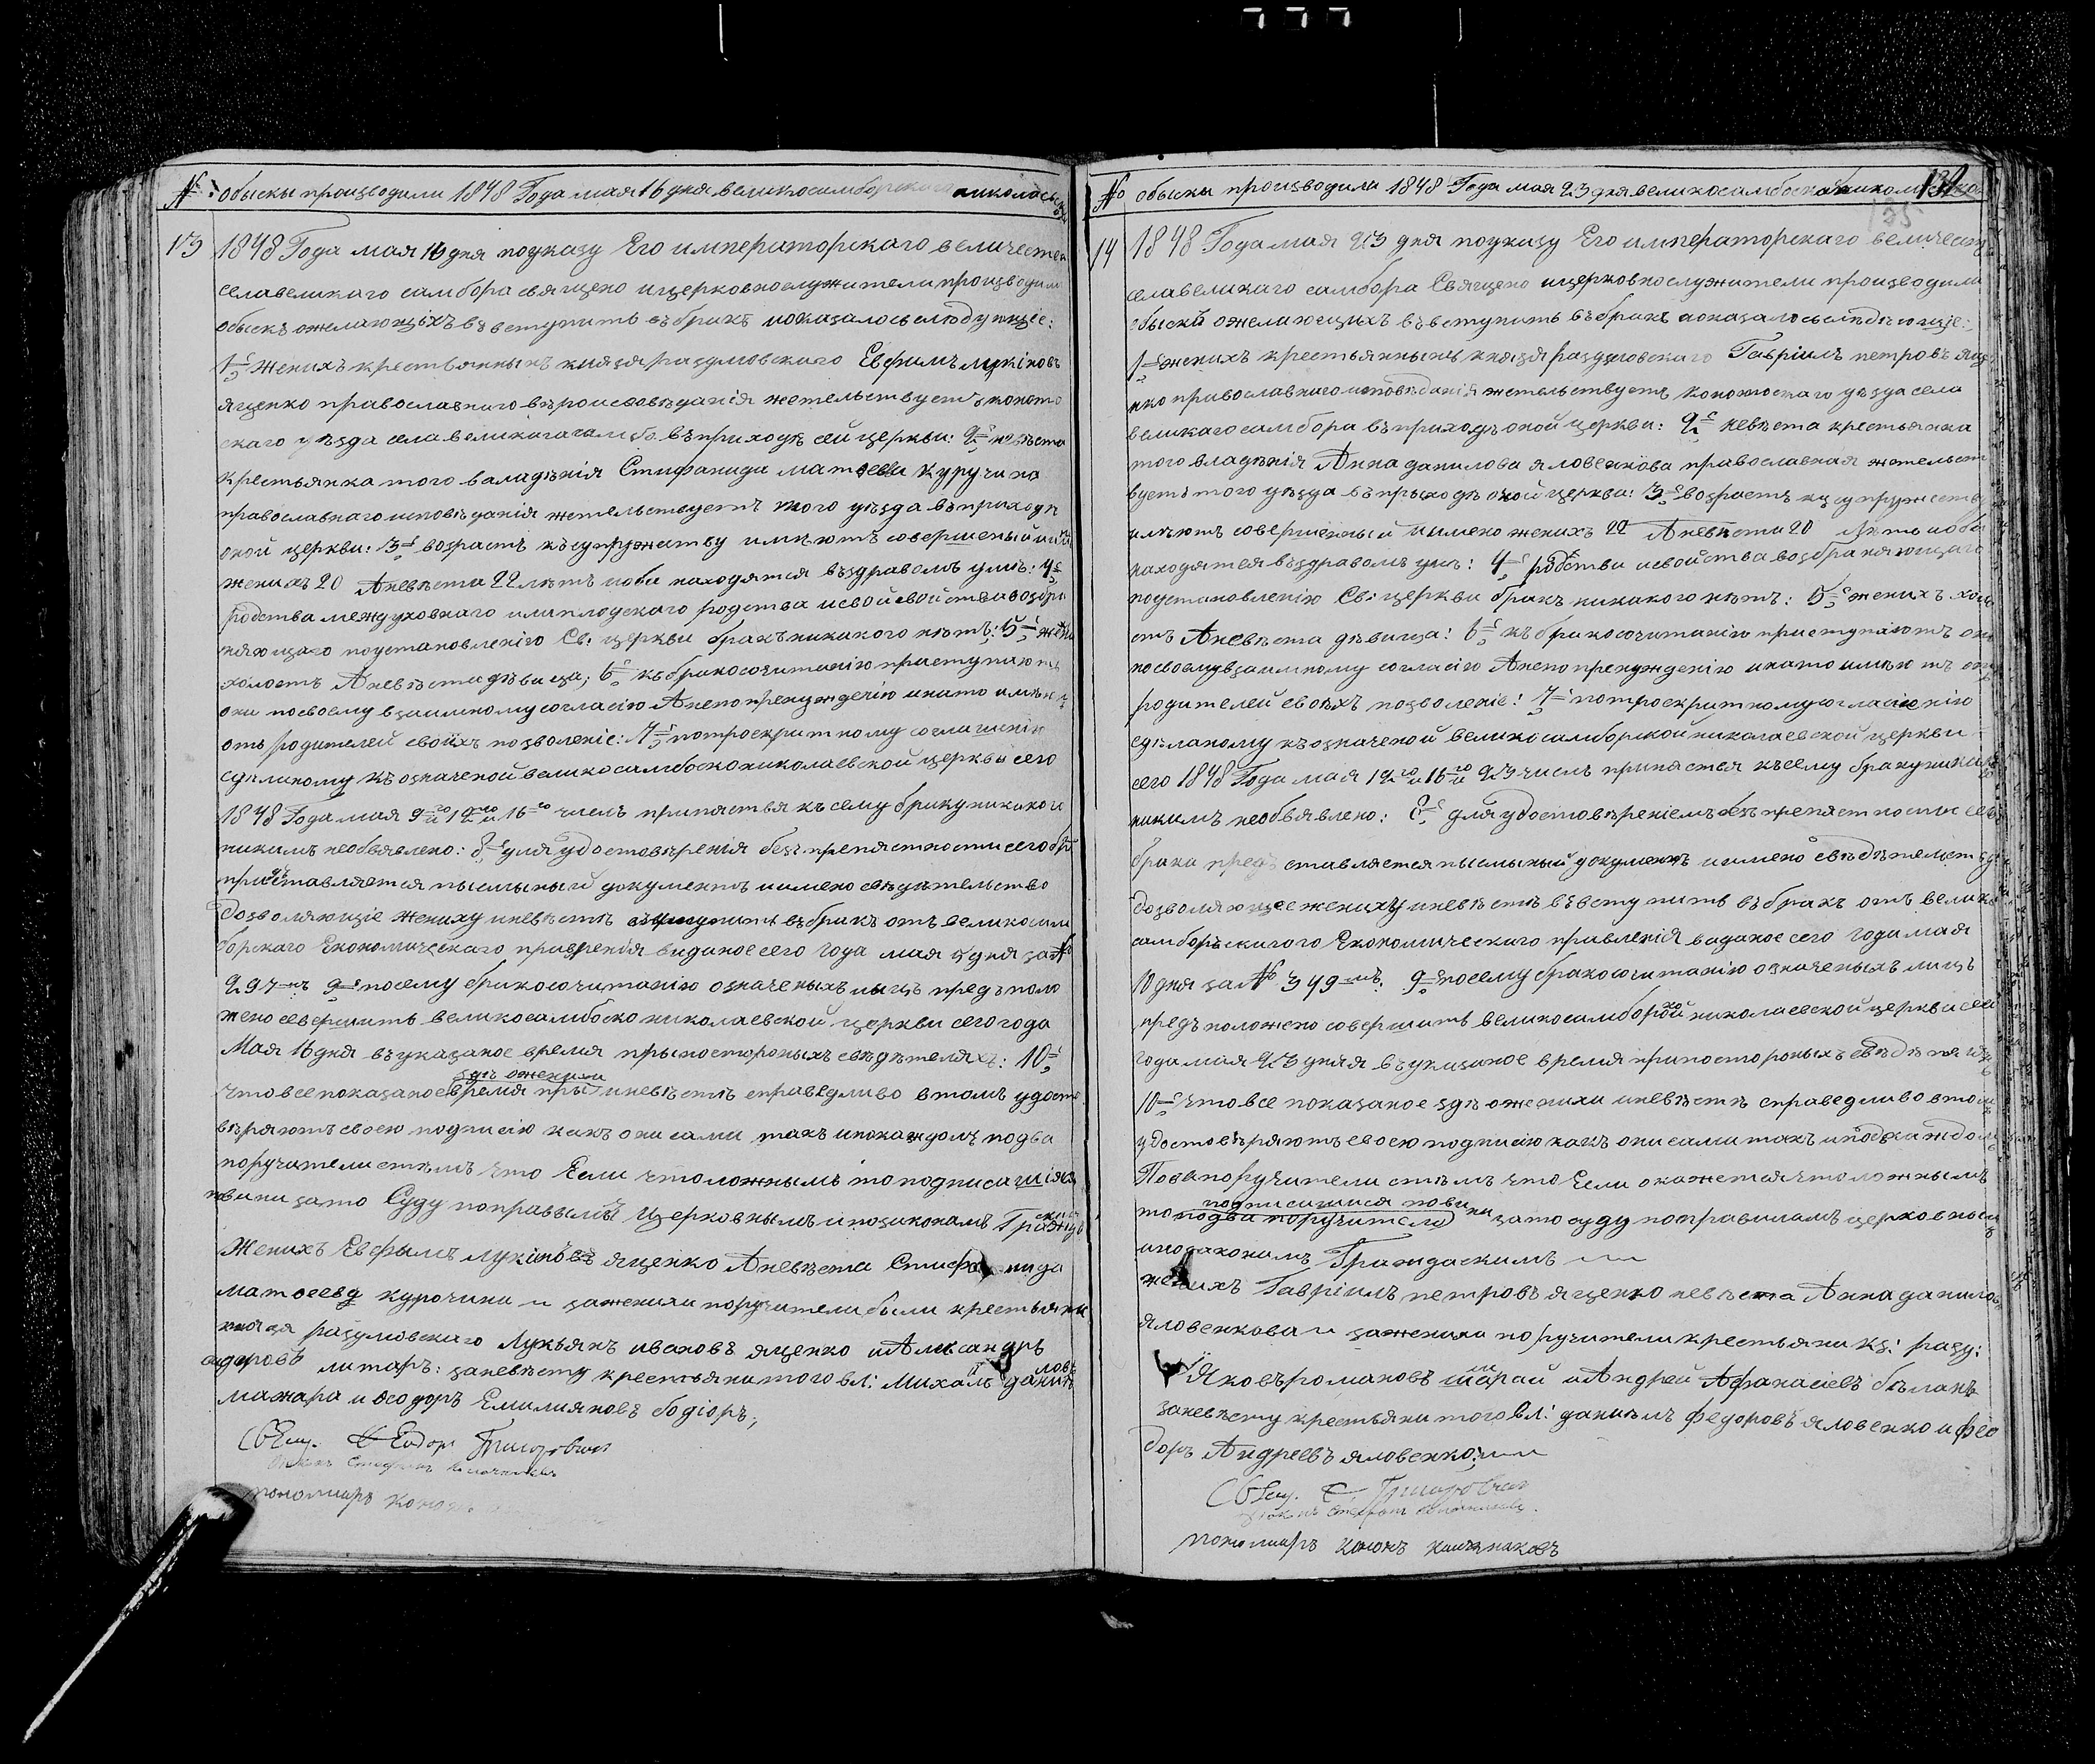 № обыски производили 1848 Года мая 16 дня великосамборскаго николаевс
13
1848 Года мая 16 дня поуказу Его императорскаго величества
села великаго самбора священо ицерковнослужители производили
обыскъ ожелающихъ въвступить въбракъ показалось слюдующіе:
1е женихъ крестьянинынъ князя разумовского Евфимъ лукіновъ
яценко православнаго вѣроисповѣданія жетельствуетъ коното
скаго уѣзда села великаго самбо. въприходѣ сей церкви: 2е невѣста
крестьянка того валадѣнія Стифанида матвеева Куручина
православнаго исповѣданія жетельствуетъ того уѣзда въприходѣ
оной церкви: 3е возрастъ късупружеству имѣютъ совершеный
женихъ 20 Аневѣста 22 лѣтъ иоба находятся въздравомъ умѣ: 4е
родства междуховнаго илиплодскаго родства исвойсвойства возбра
няющаго поустановленію Св: церкви бракъ никакого нѣтъ: 5е жених
холостъ Аневѣста дѣвица; 6е къбракосочитанію приступаютъ
они посвоему взаимному согласію Анепопренужденію инато имѣю
отъ родителей своихъ позволеніе: 7е потроекритному согласию
сдѣланому къозначеной великосамбоско николаевской церкви сего
1848 Года мая 9го и 12го и 16го числъ припятствя късему браку никакого
никимъ необъявлено: 8е для удостовѣренія безъ препятности сего бра
приставляется пысьмыный документъ имено свѣдѣтельство
Дозволяющіе жениху иневѣстѣ въвступить въбракъ отъ великосам
борскаго Економическаго правренія виданое сего года мая 5 дня за №
297мъ 9е посему бракосочитанію означеныхъ лыцъ предъполо
жено севершить великосамбоско николаевской церкви сего года
Мая 16 дня въуказаное время прыпостороныхъ свѣдѣтеляхъ: 10е
здѣ оженихи
Что все показаное время при иневѣстѣ справедливо втомъ удосто
вѣряютъ своею подписію какъ они сами такъ ипокаждомъ подва
поручители стѣмъ что Если что ложнымъ то подписавшіяся
повини зато Суду поправыламъ церковнымъ ипозаконамъ Гражд
Женихъ Евфымъ лукіновъ яценко Аневѣста Стифанида
матвеева курочина и заженихи поручители были крестьяни
князя разумовского Лукьянъ ивановъ яценко иАлександръ
литаръ: заневѣсту крестьяни того вл: Михаилъ данил ловъ
мажара и Феодоръ Емилияновъ бодіоръ;
Свящ. Феодор Григорович
Дьяконъ Стефанъ
пономаръ Конон

№ обыски производили 1848 Года мая 23 дня великосамбоско николаевско
132
135
14
1848 Года мая 23 дня поуказу Его императорскаго величеств
села великаго самбора Священо ицерковнослужители производили
обыскъ ожелающихъ въвступить въбракъ показалось слѣдующіе:
1е женихъ крестьянинынъ князя разумовского Гавріилъ петровъ яце
нко православнаго исповѣданія жетельствуетъ Конотоскаго уѣзда села
великаго самбора въприходѣ оной церкви: 2е невѣста крестьянка
того владѣнія Анна данилова яловенкова православная жетельст
вуетъ того уѣзда въприходѣ оной церкви: 3е возрастъ ксупружеству
имѣютъ совершеный имено женихъ 22 Аневѣста 20 лѣтъ иоба
находятся въздравомъ умѣ: 4е родства исвойства возбраняющаго
поустановленію Св: церкви бракъ никакого нѣтъ: 5е женихъ холо
стъ Аневѣста дѣвица: 6е къбракосочитанію приступаютъ они
посвоему взаимному согласію Анепопренужденію инато имѣютъ отъ
родителей своихъ позволеніе: 7е потроекритному согласію
сдѣланому къозначеной великосамборской николаевской церкви
сего 1848 Года мая 12го и 16го и 23 числъ припятствя късему браку никако
никимъ необъявлено: 8е для удостовѣреніемъ безъ препятности сего
брака предъставляется пысьмыный документъ имено свѣдѣтельству
Дозволяющее жениху иневѣстѣ въвступить въбракъ отъ велико
самборъскагого Економическаго правленія виданое сего года мая
10 дня за № 349мъ: 9е посему бракосочитанію означеныхъ лицъ
предъположено совершить великосамборской николаевской церкви сего
года мая 23 дняя въуказаное время припостороныхъ свѣдѣтеля
10е Что все показаное здѣ оженихи иневѣстѣ справедливо втомъ
удостовѣряютъ своею подписію какъ они сами такъ ипокаждомъ
Подва поручители стѣмъ что Если окажется что ложнымъ
подписавшися повини
то подва поручители зато суду поправиламъ церковным
ипозаконамъ Граждаскимъ
женихъ Гавріилъ петровъ яценко невѣста Анна данилов
яловенкова и заженихи поручители крестьяни кз: разу:
Яковъ романовъ шарай иАндрей Афанасіевъ бѣланъ
заневѣсту крестьяни того вл: даниилъ федоровъ яловенко и фео
доръ Андреевъ яловенко:
Свящ. Ф Григорович
Дьяконъ Стефанъ
пономаръ Кононъ